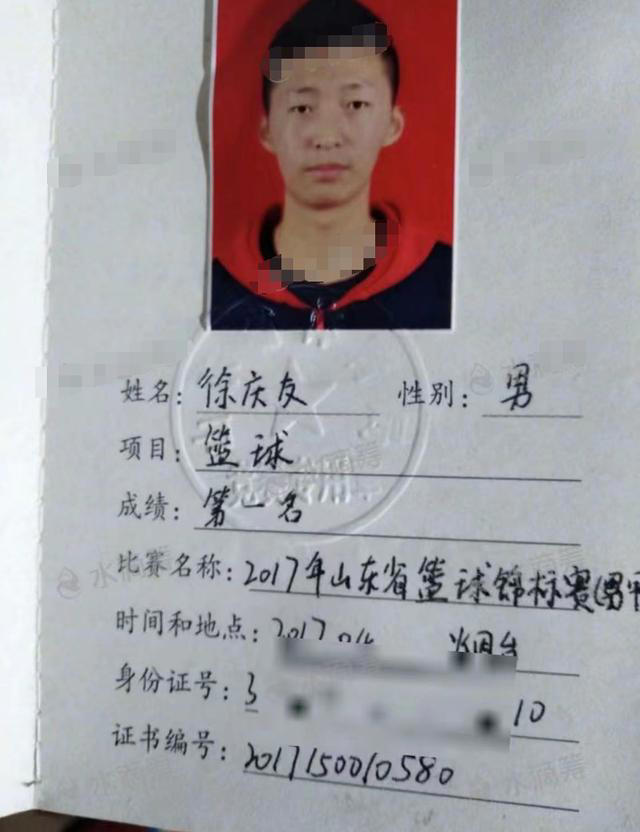 姓名：徐庆友 性别：男
项目：篮球
成绩：第一名
比赛名称：2017年山东省篮球锦标赛(男甲
时间和地点：2017 烟台
身份证号：3 10
证书编号：2017150010580
水滴筹
水滴筹
水滴筹